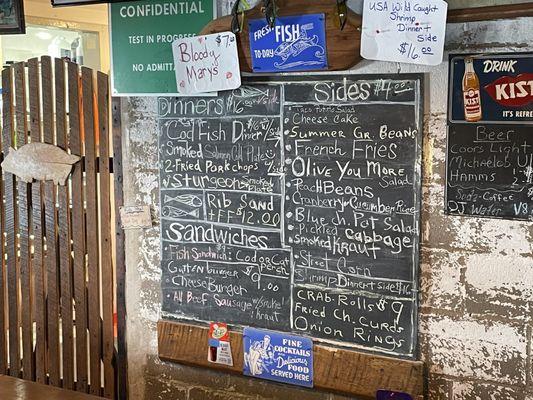 CONFIDENTIAL
TEST IN PROGRESS
NO ADMITTA
Bloody $7.
Mary's
FRESH
FISH
TO-DAY
USA Wild Caught
Shrimp
Dinner + Side
$16.00
DRINK
KIST
IT'S REFRE
KIST
Beer
Coors Light
Michaelob U
Hamms
Soda-Coffee
Water
Dinners $16 /Side
Cod Fish Dinner
Smoked Salmon Plate
2-Fried Pork chops
Sturgeon Smoked Plate
Rib Sand
+FF $12.00
Sandwiches
Fish Sandwich: Cod or Cat
Perch
Guttenburger $9.00
CheeseBurger
All Beef Sausage w/smoke
Kraut
Sides $4.00
Potato Salad
Cheese Cake
Summer Gr. Beans
French Fries
Olive You More
Salad
Beans
Cranberry Cucumber Rice
Blue ch. Pot Salad
Pickled Cabbage
Smoked Kraut
Street Corn
Shrimp Dinner + Side $16.
Crab-Rolls $9
Fried Ch. Curds
Onion Rings
FINE
COCKTAILS
Delicious
FOOD
SERVED HERE